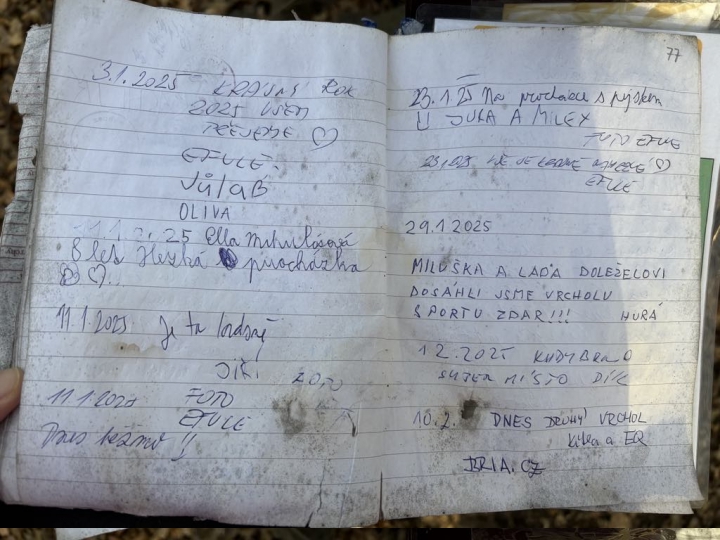 3.1.2025 KRÁSNÝ ROK
2025 VŠEM
PŘEJEME ♡
EFULE
OLIVA
1.1.25 Ella
8 let Hezká procházka
♡..
11.1.2025 Je tu krásně
JIŘÍ
11.1.2025 FOTO
EFULE
Dnes
77
23.1.25 Na procházce s pejskem
JUKA A MILEX
FOTO EFULE
EFULE
29.1.2025
MILUŠKA A LAĎA DOLEŽELOVI
DOSÁHLI JSME VRCHOLU
SPORTU ZDAR!!! HURÁ
1 2.2025 KUDYBRNO
SUPER MÍSTO DÍK
10.2. DNES DRUHÝ VRCHOL
Kika a EQ
BRIA.CZ